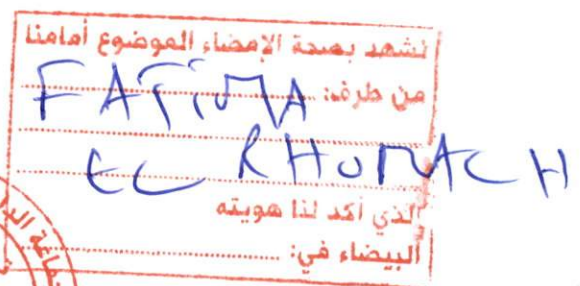 نشهد بصحة الإمضاء الموضوع أمامنا
من طرف: FATIMA
EL RHOMACH
الذي أكد لنا هويته
البيضاء في: